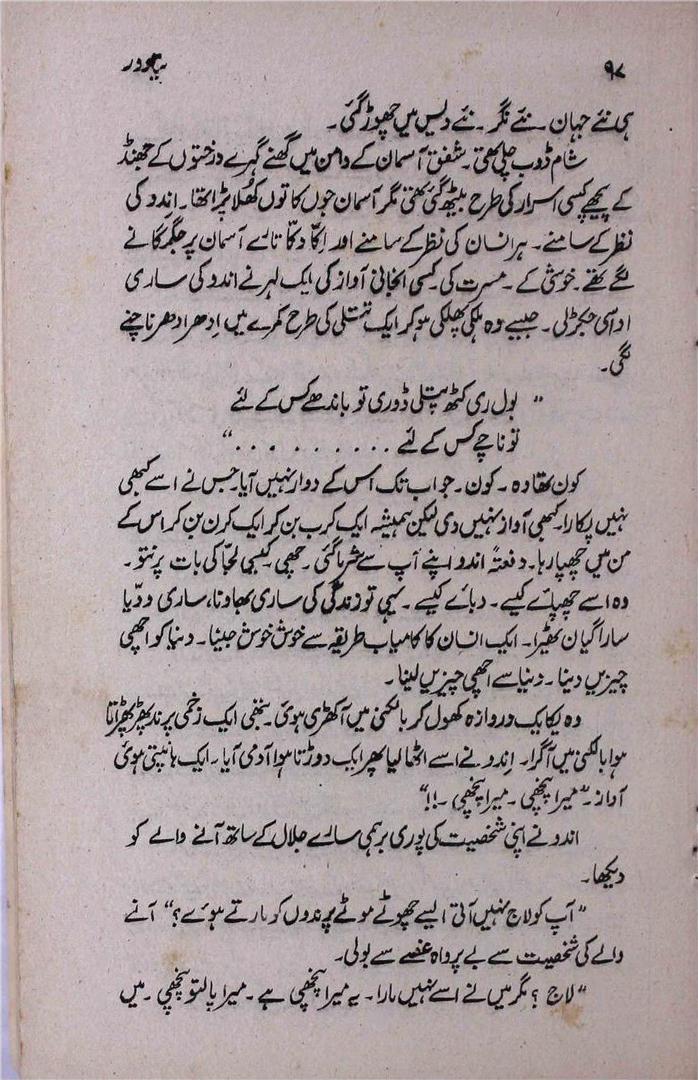 ۹۷
ہی نئے جہان ۔ نئے نگر ۔ نئے دیس میں چھوڑ گئی ۔
شام ڈوب چلی تھی ۔ شفق آسمان کے دامن میں گھنے گہرے درختوں کے جھنڈ
کے پیچھے کسی اسرار کی طرح بیٹھ گئی تھی مگر آسمان جوں کا توں کھُلا پڑا تھا ۔ اِندو کی
نظر کے سامنے ۔ ہر انسان کی نظر کے سامنے اور اِکّا دکّا تارے آسمان پر جگمگانے
لگے تھے ۔ خوشی کے ۔ مسرت کی کسی انجانی آواز کی ایک لہر نے اندو کی ساری
اداسی جکڑ لی ۔ جیسے وہ ہلکی پھلکی ہو کر ایک تتلی کی طرح کمرے میں اِدھر ادھر ناچنے
لگی ۔
" بول ری کٹھ پتلی ڈوری تو باندھے کس کے لئے
تو ناچے کس کے لئے . . . . . . . . . "
کون تھا وہ ۔ کون ۔ جو اب تک اس کے دوار نہیں آیا ۔ جس نے اسے کبھی
نہیں پکارا ۔ کبھی آواز نہیں دی لیکن ہمیشہ ایک کرب بن کر ایک کرن بن کر اس کے
من میں چھپا رہا ۔ دفعتہً اندو اپنے آپ سے شرما گئی ۔ چھی ۔ کیسی لجّا کی بات پرنتو ۔
وہ اسے چھپائے کیسے ۔ دبائے کیسے ۔ یہی تو زندگی کی ساری بھاونا، ساری ودّیا
سارا گیان ٹھیرا ۔ ایک انسان کا کامیاب طریقہ سے خوش خوش جینا ۔ دنیا کو اچھی
چیزیں دینا ۔ دنیا سے اچھی چیزیں لینا ۔
وہ یکایک دروازہ کھول کر بالکنی میں آ کھڑی ہوئی ۔ تبھی ایک زخمی پرند پھڑپھڑاتا
ہوا بالکنی میں آ گرا ۔ اِندو نے اسے اٹھا لیا پھر ایک دوڑتا ہوا آدمی آیا ۔ ایک ہانپتی ہوئی
آواز ۔ "میرا پنچھی ۔ میرا پنچھی ۔ !!"
اندو نے اپنی شخصیت کی پوری برہمی سارے جلال کے ساتھ آنے والے کو
دیکھا ۔
" آپ کو لاج نہیں آتی ایسے چھوٹے موٹے پرندوں کو مارتے ہوئے ؟ " آنے
والے کی شخصیت سے بے پرواہ غصے سے بولی ۔
" لاج ؟ مگر میں نے اسے نہیں مارا ۔ یہ میرا پنچھی ہے ۔ میرا پالتو پنچھی ۔ میں